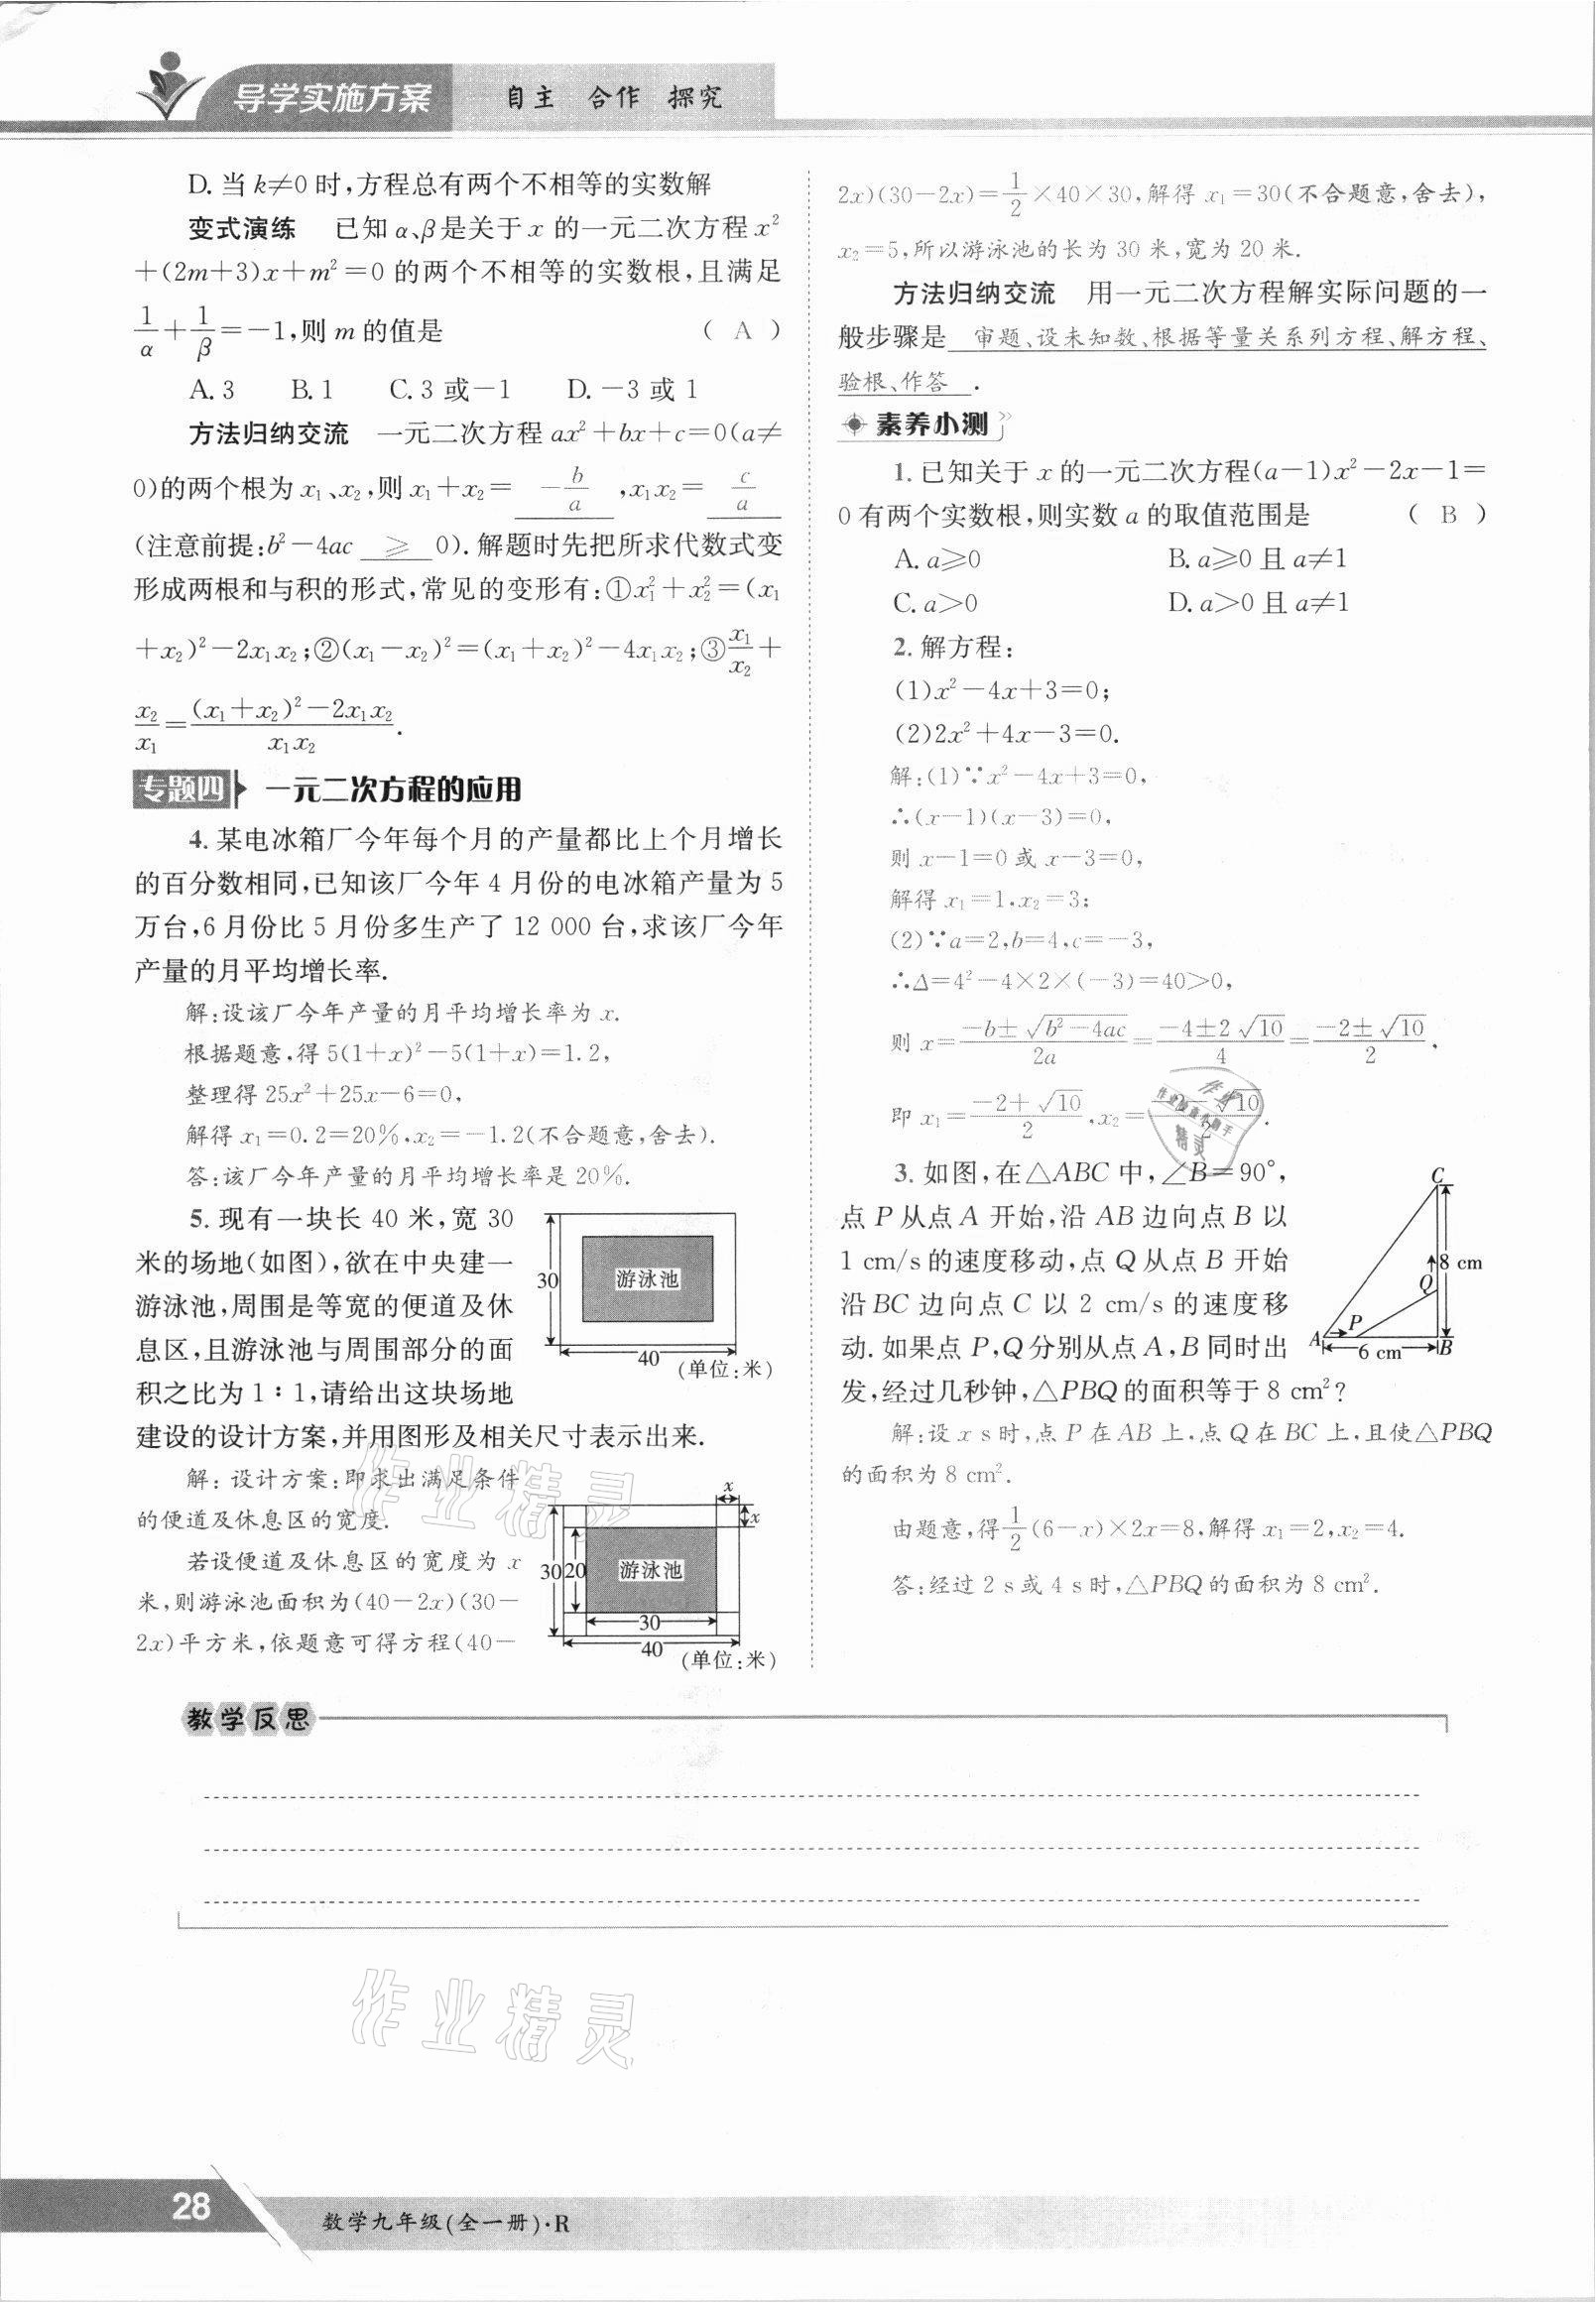 导学实施方案
自主 合作 探究
D. 当 k≠0 时,方程总有两个不相等的实数解
变式演练 已知 α、β是关于 x 的一元二次方程 x²
+(2m+3)x+m²=0 的两个不相等的实数根,且满足
1/α+1/β=-1,则 m 的值是 ( A )
A. 3 B. 1 C. 3 或-1 D. -3 或 1
方法归纳交流 一元二次方程 ax²+bx+c=0(a≠
0)的两个根为 x₁、x₂,则 x₁+x₂= -b/a ,x₁x₂= c/a
(注意前提:b²-4ac ≥ 0). 解题时先把所求代数式变
形成两根和与积的形式,常见的变形有:①x₁²+x₂²=(x₁
+x₂)²-2x₁x₂;②(x₁-x₂)²=(x₁+x₂)²-4x₁x₂;③x₁/x₂+
x₂/x₁=((x₁+x₂)²-2x₁x₂)/(x₁x₂).
专题四 一元二次方程的应用
4. 某电冰箱厂今年每个月的产量都比上个月增长
的百分数相同,已知该厂今年 4 月份的电冰箱产量为 5
万台,6 月份比 5 月份多生产了 12 000 台,求该厂今年
产量的月平均增长率.
解:设该厂今年产量的月平均增长率为 x.
根据题意,得 5(1+x)²-5(1+x)=1.2,
整理得 25x²+25x-6=0,
解得 x₁=0.2=20%,x₂=-1.2(不合题意,舍去).
答:该厂今年产量的月平均增长率是 20%.
5. 现有一块长 40 米,宽 30
米的场地(如图),欲在中央建一
游泳池,周围是等宽的便道及休
息区,且游泳池与周围部分的面
积之比为 1∶1,请给出这块场地
建设的设计方案,并用图形及相关尺寸表示出来.
30
游泳池
40
(单位:米)
解: 设计方案:即求出满足条件
的便道及休息区的宽度.
若设便道及休息区的宽度为 x
米,则游泳池面积为(40-2x)(30-
2x)平方米,依题意可得方程(40-
x
x
30
20
游泳池
30
40
(单位:米)
2x)(30-2x)=1/2×40×30,解得 x₁=30(不合题意,舍去),
x₂=5,所以游泳池的长为 30 米,宽为 20 米.
方法归纳交流 用一元二次方程解实际问题的一
般步骤是 审题、设未知数、根据等量关系列方程、解方程、
验根、作答 .
素养小测
1. 已知关于 x 的一元二次方程(a-1)x²-2x-1=
0 有两个实数根,则实数 a 的取值范围是 ( B )
A. a≥0 B. a≥0 且 a≠1
C. a>0 D. a>0 且 a≠1
2. 解方程:
(1)x²-4x+3=0;
(2)2x²+4x-3=0.
解:(1)∵x²-4x+3=0,
∴(x-1)(x-3)=0,
则 x-1=0 或 x-3=0,
解得 x₁=1,x₂=3;
(2)∵a=2,b=4,c=-3,
∴Δ=4²-4×2×(-3)=40>0,
则 x=(-b±√(b²-4ac))/2a=(-4±2√10)/4=(-2±√10)/2,
即 x₁=(-2+√10)/2,x₂=(-2-√10)/2.
3. 如图,在△ABC 中,∠B=90°,
点 P 从点 A 开始,沿 AB 边向点 B 以
1 cm/s 的速度移动,点 Q 从点 B 开始
沿 BC 边向点 C 以 2 cm/s 的速度移
动. 如果点 P,Q 分别从点 A,B 同时出
发,经过几秒钟,△PBQ 的面积等于 8 cm²?
C
8 cm
Q
P
A
6 cm
B
解:设 x s 时,点 P 在 AB 上,点 Q 在 BC 上,且使△PBQ
的面积为 8 cm².
由题意,得1/2(6-x)×2x=8,解得 x₁=2,x₂=4.
答:经过 2 s 或 4 s 时,△PBQ 的面积为 8 cm².
作业精灵
教学反思
作业精灵
28
数学九年级(全一册)·R